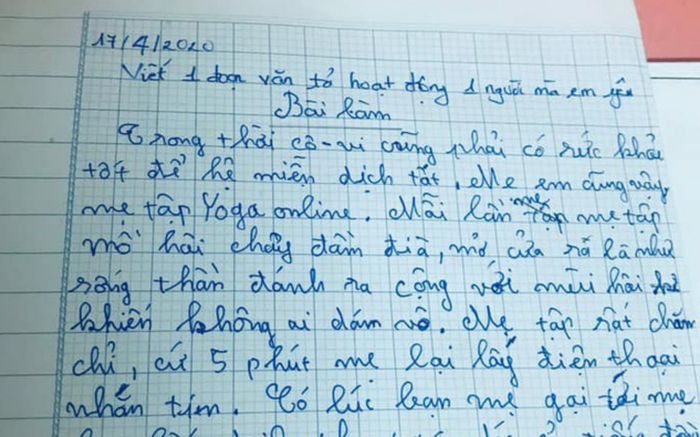 17/4/2020
Viết 1 đoạn văn tả hoạt động 1 người mà em yêu
Bài làm
Trong thời cô-vi cũng phải có sức khỏe
tốt để hệ miễn dịch tốt. Mẹ em cũng vậy,
mẹ tập Yoga online. Mỗi lần mẹ tập
mồ hôi chảy đầm đìa, mở cửa ra là như
sóng thần đánh ra cộng với mùi hôi
khiến không ai dám vô. Mẹ tập rất chăm
chỉ, cứ 5 phút mẹ lại lấy điện thoại
nhắn tin. Có lúc bạn mẹ gọi tới mẹ